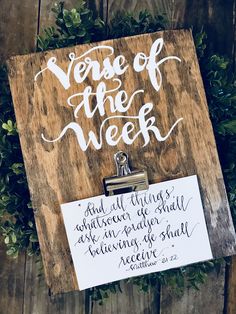 Verse of
the
Week
And all things
whatsoever ye shall
ask in prayer,
believing, ye shall
receive.
Matthew 21:22